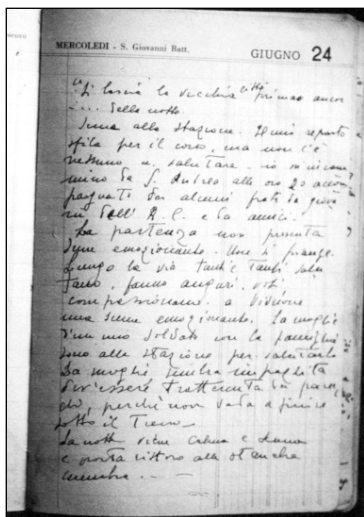 MERCOLEDI - S. Giovanni Batt.
GIUGNO 24
"Si lascia la vecchia città prima ancor
.... della notte.
Scena alla stazione. Il mio reparto
sfila per il corso, ma non c'è
nessuno a salutare. io
mino da S. Andrea alle ore 20 accom
pagnato da alcuni frati da giova
ni dell'A.C. e da amici.
La partenza non presenta
scene emozionanti. Non si piange.
Lungo la via tanti e tanti salu
tano, fanno auguri,
compassionano. a Bivione
una scena emozionante. La moglie
d'un mio soldato con la famiglia
sono alla stazione per salutarlo
La moglie sembra impazzita
dev'essere trattenuta da paren
ti, perchè non vada a finire
sotto il treno -
La notte viene calma e
e porta ristoro alle stanche
membra . . -